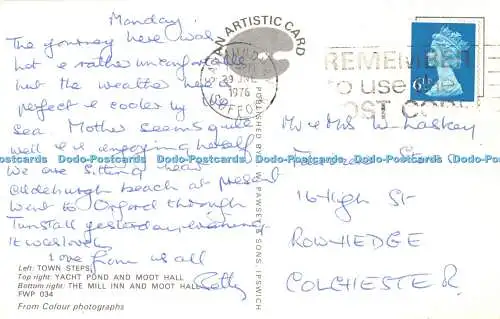 Monday.
The journey here was
hot & rather uncomfortable
but the weather here is
perfect & cooler by the
sea. Mother seems quite
well & is enjoying herself
We are sitting near
Aldeburgh beach at present
went to Orford through
Tunstall yesterday evening
It was lovely
Love from us all
Betty
Left: TOWN STEPS
Top right: YACHT POND AND MOOT HALL
Bottom right: THE MILL INN AND MOOT HALL
FWP 034
From Colour photographs
AN ARTISTIC CARD
PUBLISHED BY F. W. PAWSEY & SONS, IPSWICH
29 JNE
1976
SUFFOLK
REMEMBER
to use the
POST CODE
6½P
Mr & Mrs W. Laskey
16 High St
ROWHEDGE
COLCHESTER.
Dodo-Postcards Dodo-Postcards Dodo-Postcards Dodo-Postcards Dodo-Postcards Dodo-Postcards